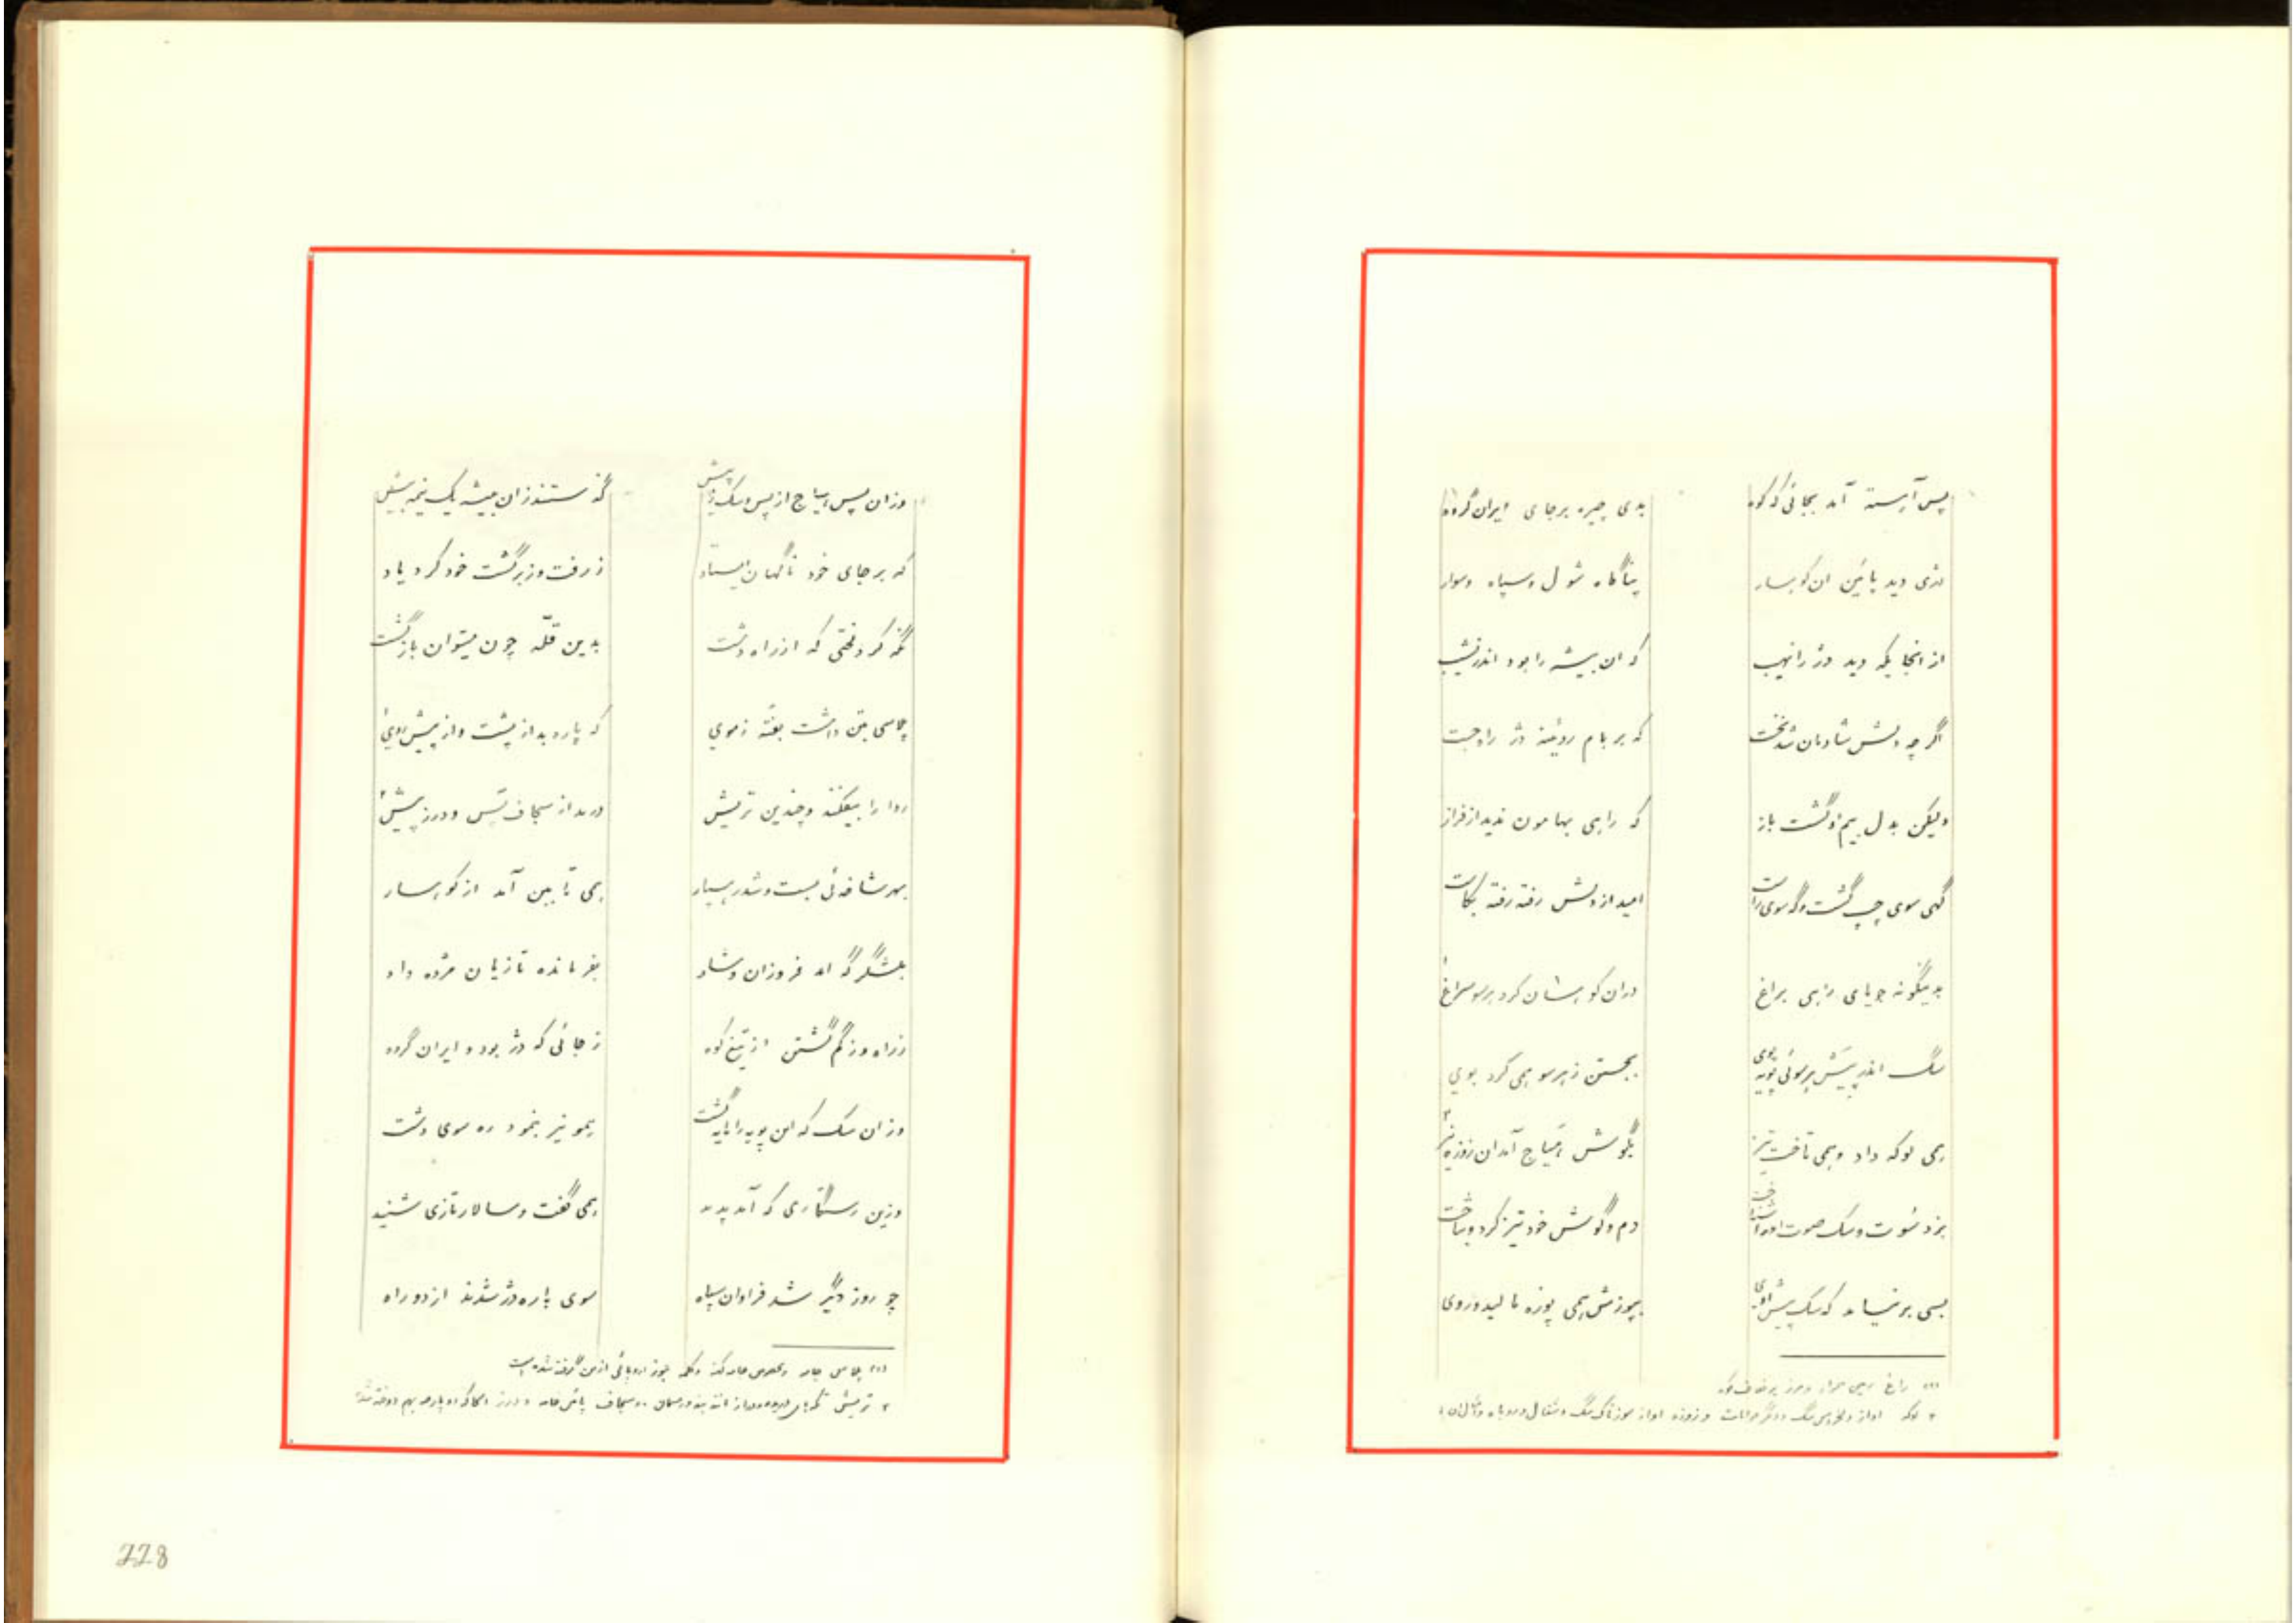 پس آهسته آمد بجائی که کوه
بدی چیره بر جای ایران گروه
دزی دید پائین ان کوهسار
پناگاه شول و سپاه و سوار
از انجا یکه دید دژ را نهیب
که ان بیشه را بود اندر نشیب
اگر چه دلش شادمان شد نخست
که بر بام روئینه دژ راه جست
ولیکن بدل بیم او گشت باز
که راهی بهامون ندید از فراز
گهی سوی چپ گشت و گه سوی راست
امید از دلش رفته رفته بکاست
بدینگونه جویای راهی براغ
دران کوهسان کرد هر سو سراغ ۱
سگ اندر پیش هر سوئی پویه پوی
بجستن ز هر سو همی کرد بوی
همی لوکه داد و همی تاخت تیز
بگوش آمد ان زوزه نیز ۲
بزد سوت و سگ صوت او را شناخت
دم و گوش خود تیز کرد و بتاخت
بسی بر نیامد که سگ پیش اوی
بپوزش همی پوزه مالید و روی
(۱) راغ
۲ لوکه اواز و سگ و دیگر حیوانات و زوزه اواز سوزناک سگ و شغال و روباه و مثال ان
وزان پس از پس و سگ ز پیش
گذشتند زان بیشه یک نیمه بیش
که بر جای خود ناگهان ایستاد
ز رفت و ز برگشت خود کرد یاد
نگه کرد لختی که از راه دشت
بدین قلّه چون میتوان بازگشت
چاسی بتن داشت بفته ز موی
که پاره بد از پشت و از پیش روی ۱
ردا را بیفکند و چندین تریش
درید از سجاف پس و درز پیش ۲
بهر شاخه‌ئی بست و شد رهسپار
همی تا بپین آمد از کوهسار
بلشگرگه امد فروزان و شاد
بفرمانده تازیان مژده داد
ز راه و ز گم گشتن از تیغ کوه
ز جائی که دژ بود و ایران گروه
وزان سگ که این پویه را پایه گشت
همو نیز بنمود ره سوی دشت
وزین رستگاری که آمد پدید
همی گفت و سالار تازی شنید
چو روز دگر شد فراوان سپاه
سوی باره دژ شدند از دو راه
(۱) چاسی و کلمه اروپائی ازین گرفته شده است
۲ تریش و سجاف پائین جامه و درز انجا که دو پارچه بهم دوخته شده
228